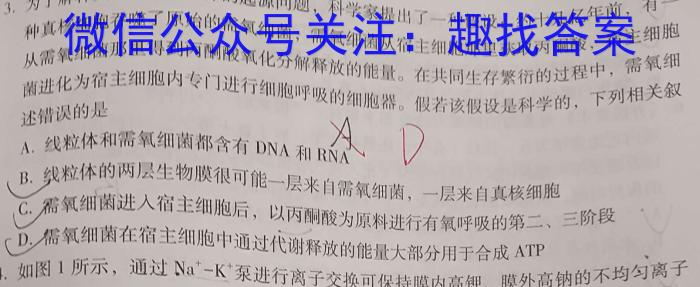 3. 为了解 的起源问题，科学家提出了一种 亿年前，有一
种真 吞噬了原始的需氧细菌，需氧细菌从宿主细胞 丙酮酸 宿主细胞
从需氧细菌那 得到丙酮酸氧化分解释放的能量。在共同生存繁衍的过程中，需氧细
微信公众号关注：趣找答案
菌进化为宿主细胞内专门进行细胞呼吸的细胞器。假若该假设是科学的，下列相关叙
述错误的是
A. 线粒体和需氧细菌都含有 DNA 和 RNA
A D
B. 线粒体的两层生物膜很可能一层来自需氧细菌，一层来自真核细胞
C. 需氧细菌进入宿主细胞后，以丙酮酸为原料进行有氧呼吸的第二、三阶段
D. 需氧细菌在宿主细胞中通过代谢释放的能量大部分用于合成 ATP
4. 如图 1 所示，通过 Na⁺-K⁺泵进行离子交换可保持膜内高钾、膜外高钠的不均匀离子